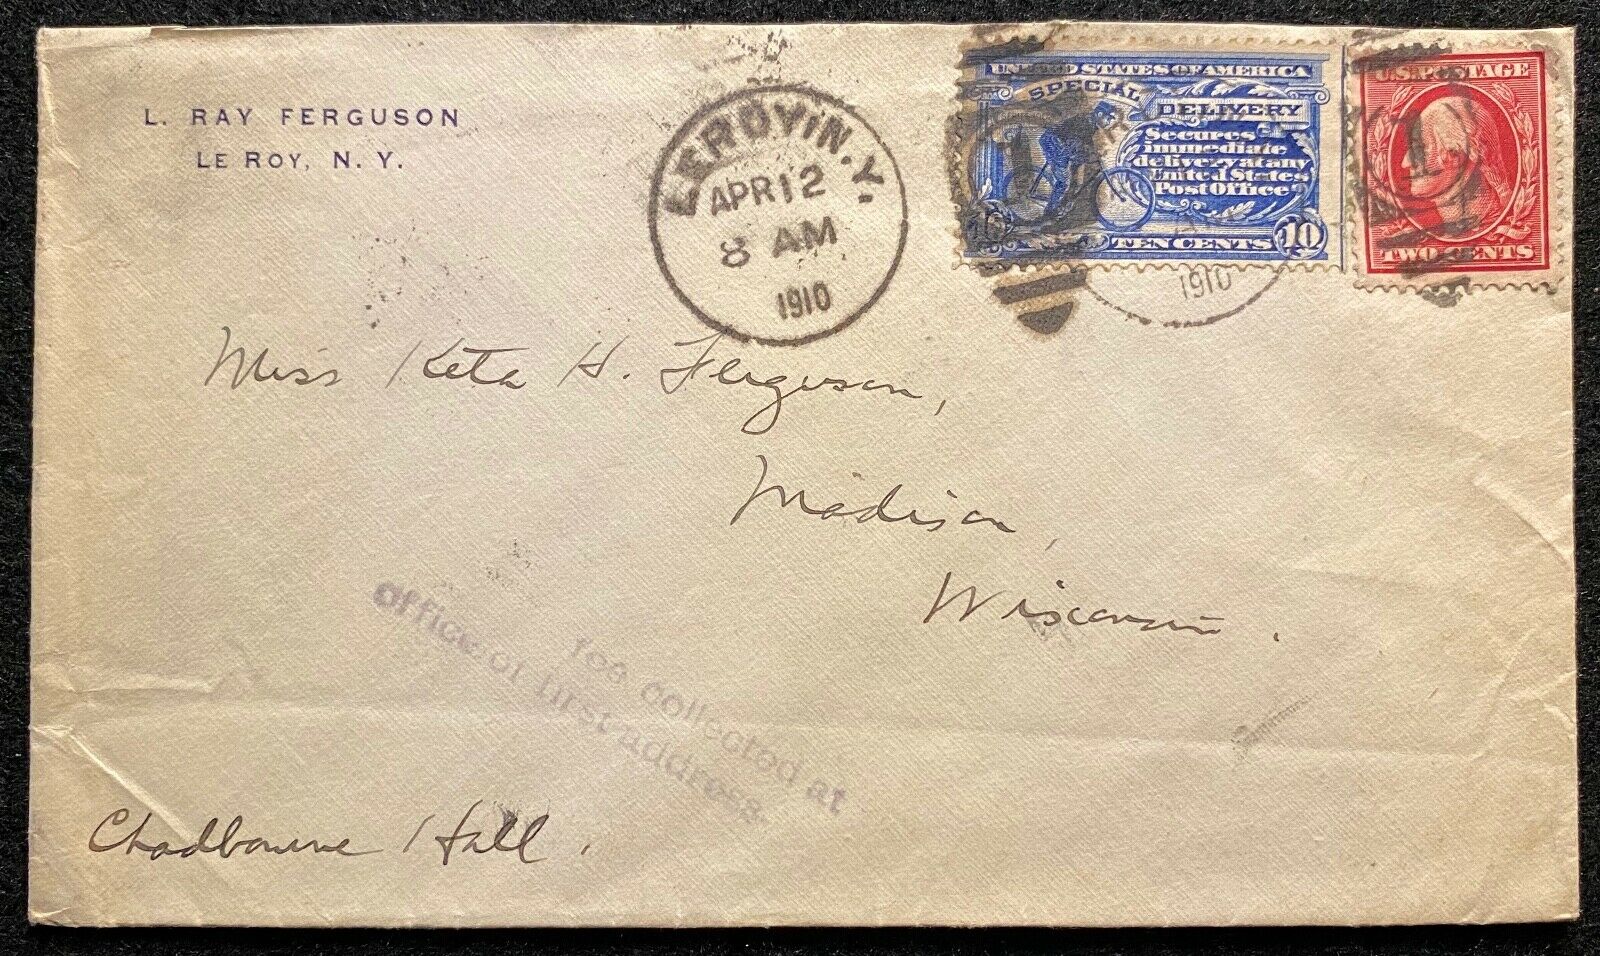 L. RAY FERGUSON
LE ROY, N. Y.
LEROY, N.Y.
APR 12
8 AM
1910
UNITED STATES OF AMERICA
SPECIAL DELIVERY
Secures
immediate
delivery at any
United States
Post Office
10 TEN CENTS 10
1910
1
U.S. POSTAGE
1
TWO CENTS
Miss Keta H. Ferguson,
Madison,
Wisconsin.
fee collected at
office of first address.
Chadbourne Hall.